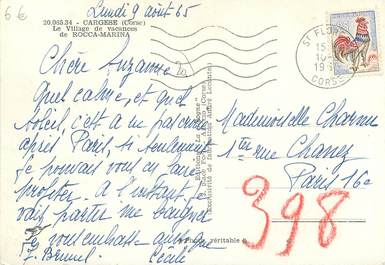 6€
Lundi 9 août 65
20.085.34 - CARGESE (Corse)
Le Village de vacances
de ROCCA-MARINA
Chère Suzanne
Quel calme, et quel
soleil, c'est à ne pas croire
après Paris, si seulement
je pouvais vous en faire
profiter. A l'instant, je
vais partir me baigner
Je vous embrasse
Cécile
J. Brunel
Photo véritable
ST FLORENT
CORSE
Mademoiselle
1 ter rue Chanez
Paris 16e
398